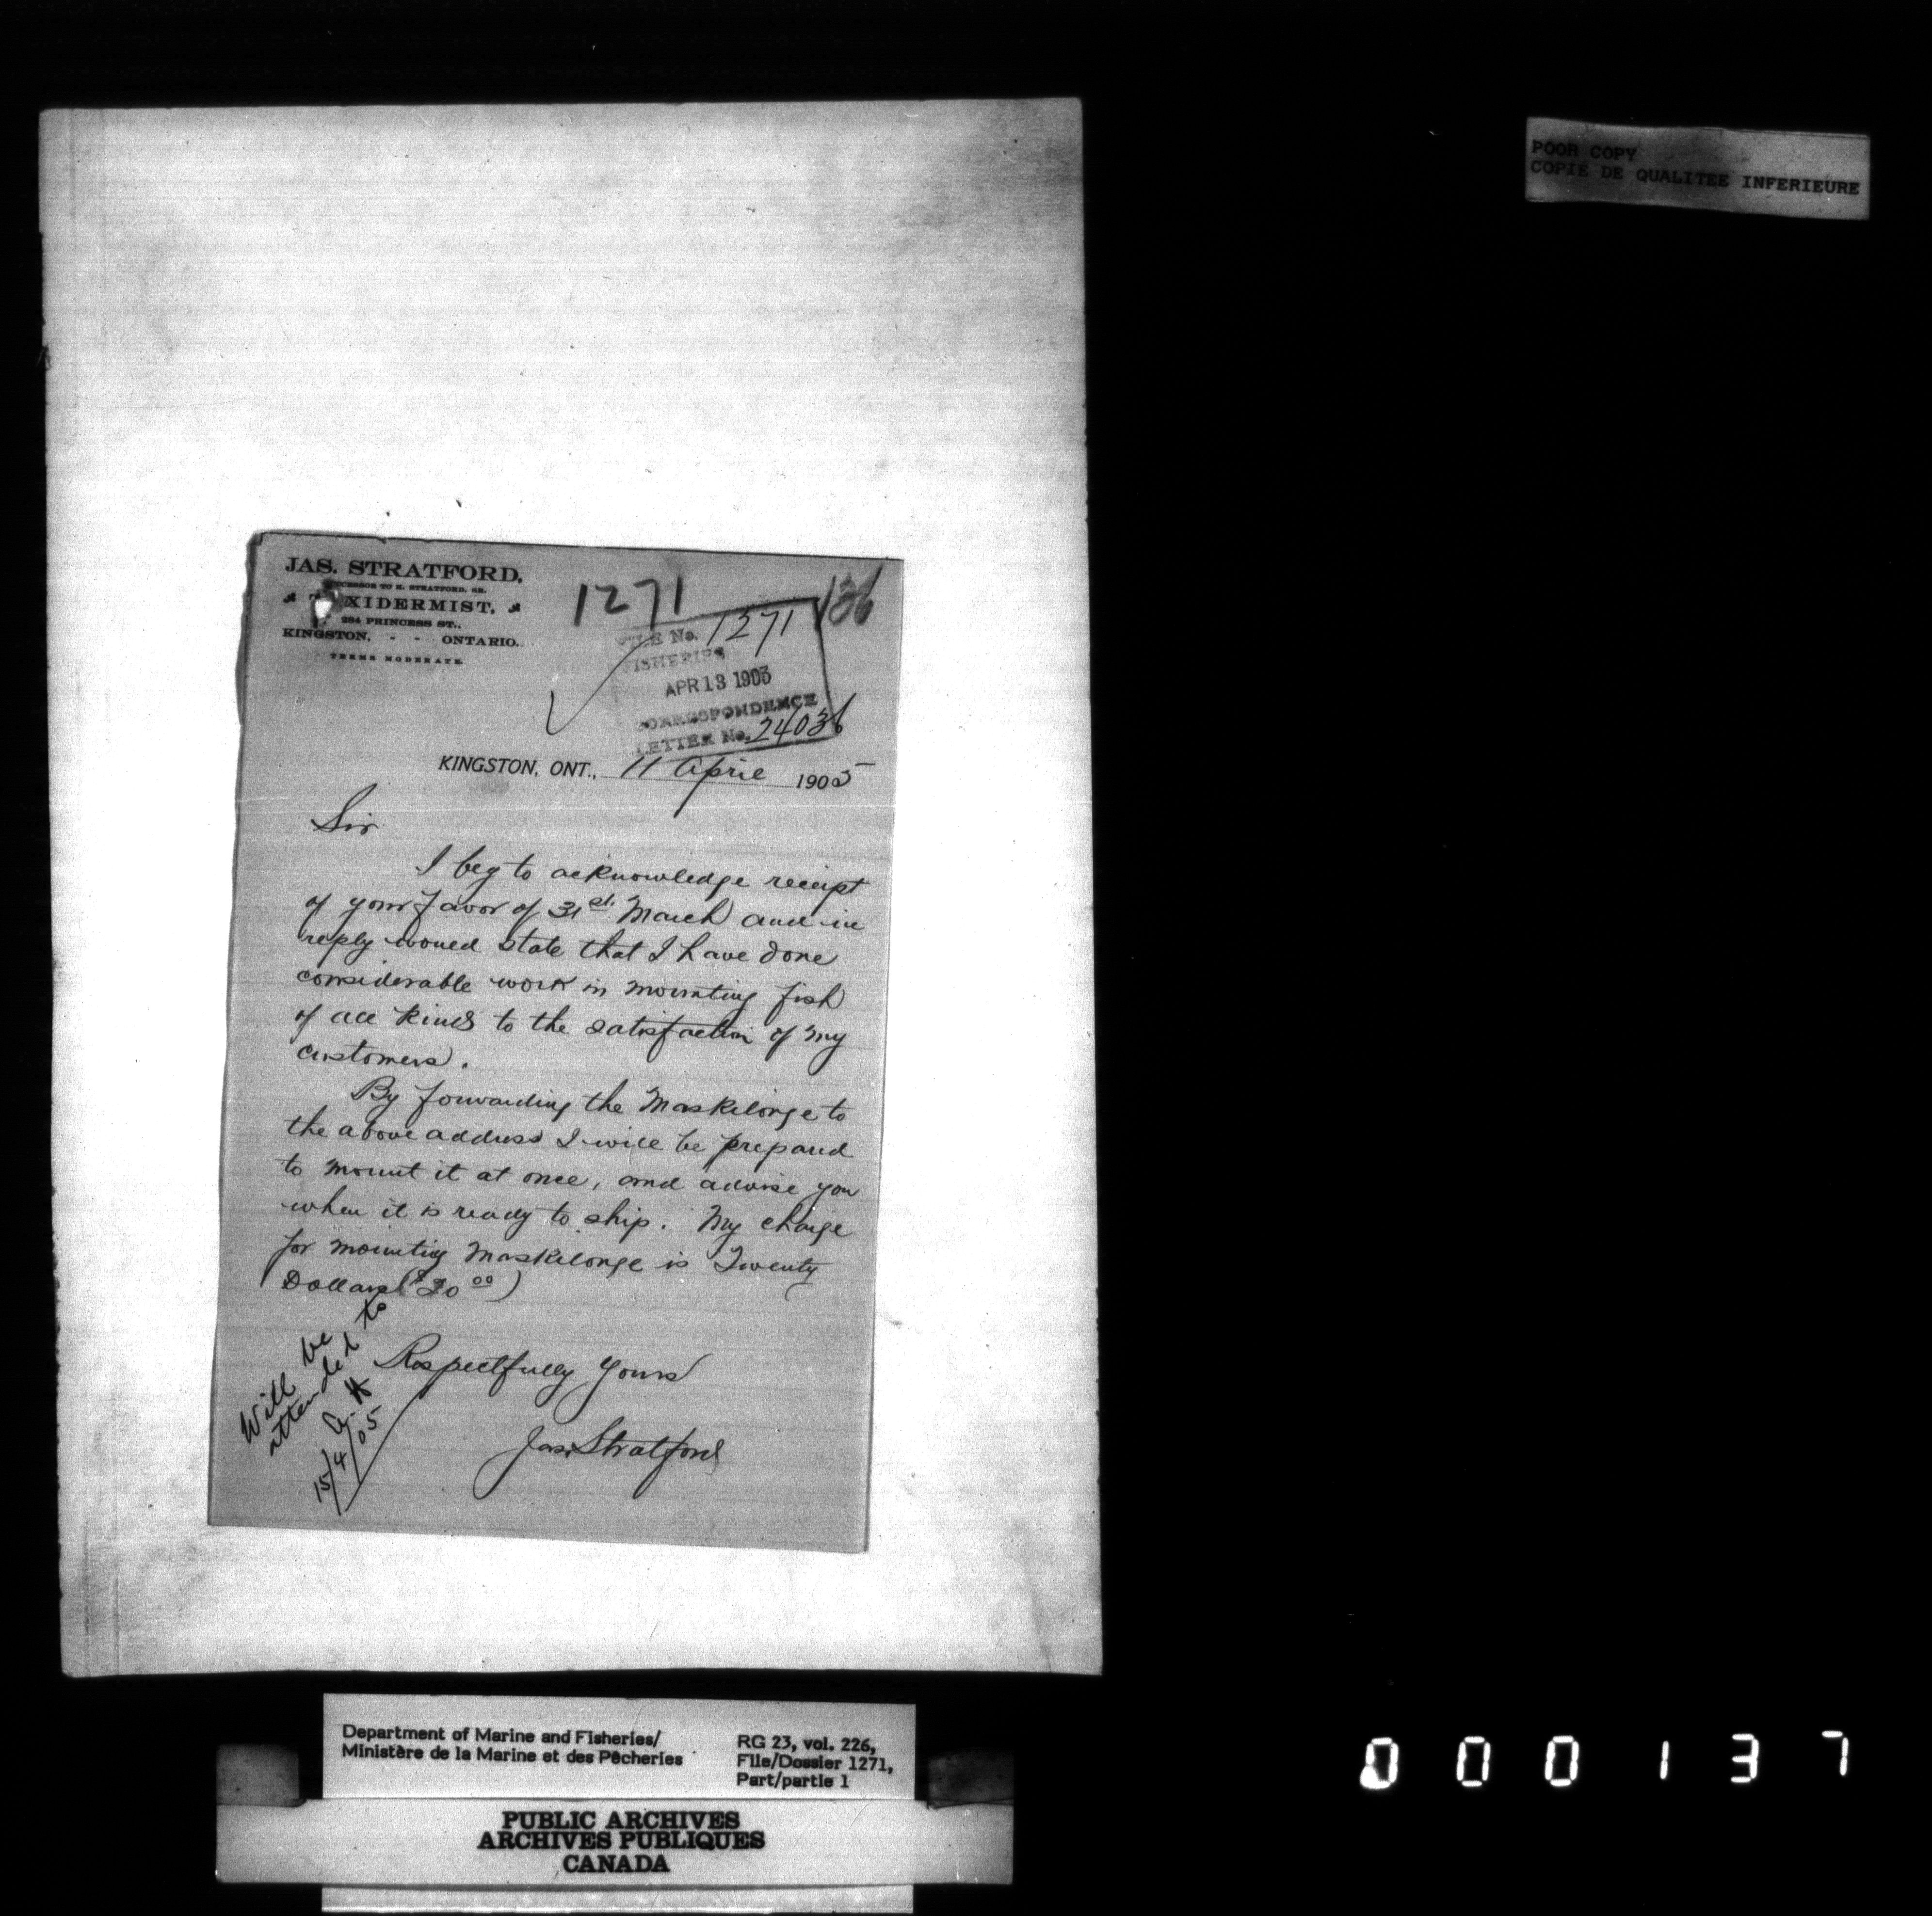 POOR COPY
COPIE DE QUALITEE INFERIEURE
JAS. STRATFORD,
SUCCESSOR TO H. STRATFORD, SR.
TAXIDERMIST,
284 PRINCESS ST.,
KINGSTON, - - ONTARIO.
TERMS MODERATE.
1271
136
FILE No. 1271
FISHERIES
APR 13 1905
CORRESPONDENCE
LETTER No. 24036
KINGSTON, ONT., 11 April 1905
Sir
I beg to acknowledge receipt
of your favor of 31st. March and in
reply would state that I have done
considerable work in mounting fish
of all kinds to the satisfaction of my
customers.
By forwarding the Maskilonge to
the above address I will be prepared
to mount it at once, and advise you
when it is ready to ship. My charge
for mounting Maskilonge is Twenty
Dollars ($20 00)
Respectfully Yours
Jas. Stratford
Will be
attended to
15/4/05
Department of Marine and Fisheries/
Ministère de la Marine et des Pêcheries
RG 23, vol. 226,
File/Dossier 1271,
Part/partie 1
PUBLIC ARCHIVES
ARCHIVES PUBLIQUES
CANADA
000137